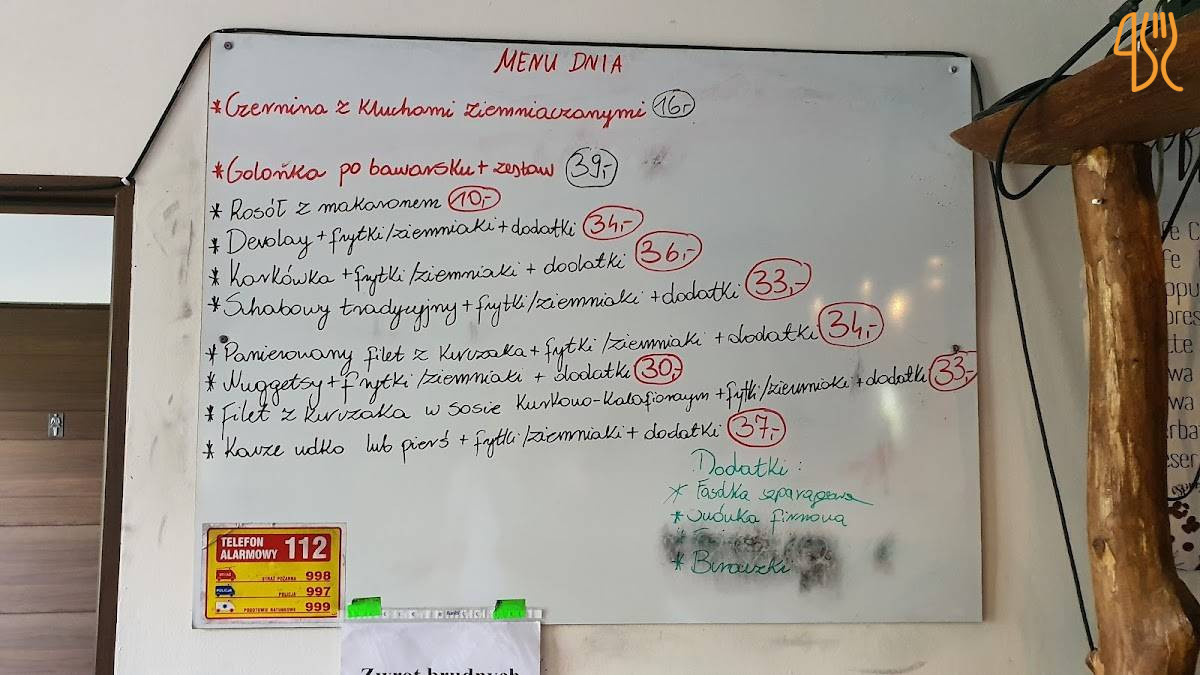 MENU DNIA
* Czernina z kluchami ziemniaczanymi 16,-
* Golonka po bawarsku + zestaw 39,-
* Rosół z makaronem 10,-
* Devolay + frytki/ziemniaki + dodatki 34,-
* Karkówka + frytki/ziemniaki + dodatki 36,-
* Schabowy tradycyjny + frytki/ziemniaki + dodatki 33,-
* Panierowany filet z kurczaka + fytki/ziemniaki + dodatki 34,-
* Nuggetsy + frytki/ziemniaki + dodatki 30,-
* Filet z kurczaka w sosie kurkowo-kalafiorowym + fytki/ziemniaki + dodatki 33,-
* Kacze udko lub pierś + fytki/ziemniaki + dodatki 37,-
Dodatki:
* Fasolka szparagowa
* Surówka firmowa
* Buraczki
TELEFON
ALARMOWY 112
STRAŻ POŻARNA 998
POLICJA 997
POGOTOWIE RATUNKOWE 999
Zwrot brudnych